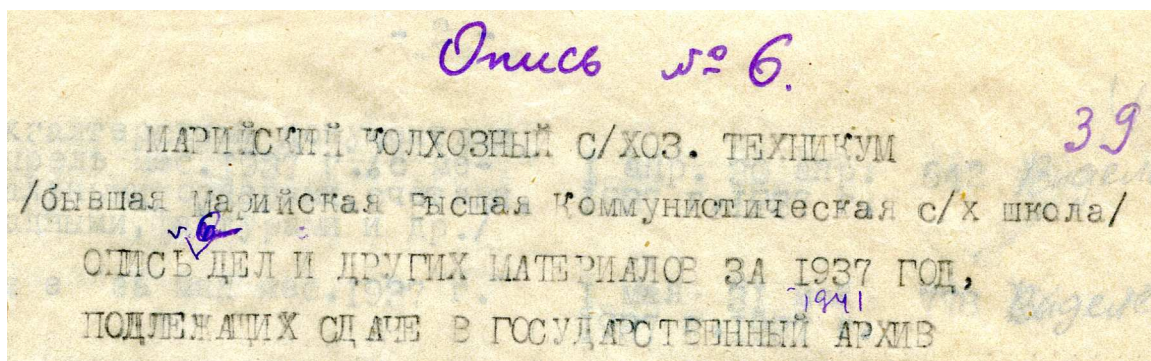 Опись № 6.
39
МАРИЙСКИЙ КОЛХОЗНЫЙ С/ХОЗ. ТЕХНИКУМ
/бывшая Марийская Высшая Коммунистическая с/х школа/
№ 6
ОПИСЬ ДЕЛ И ДРУГИХ МАТЕРИАЛОВ ЗА 1937 ГОД,
-1941
ПОДЛЕЖАЩИХ СДАЧЕ В ГОСУДАРСТВЕННЫЙ АРХИВ